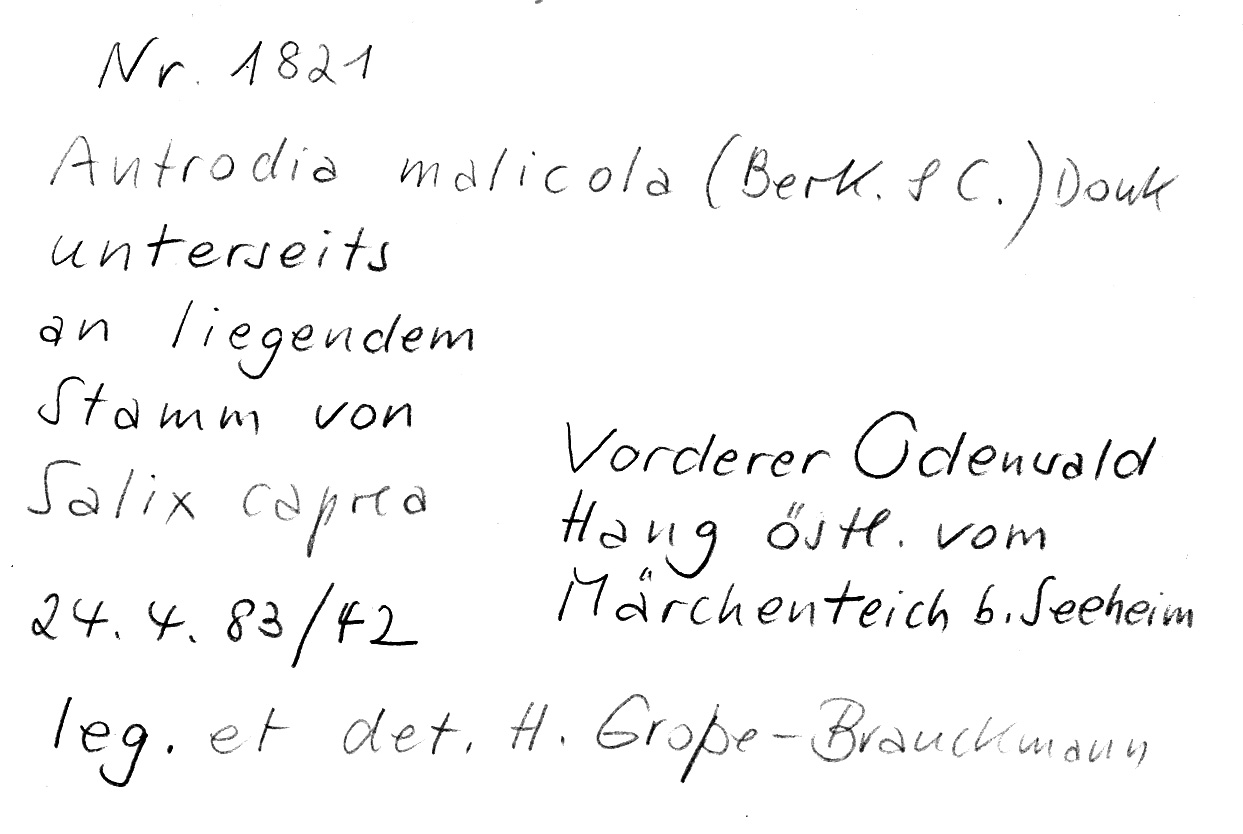 Nr. 1821
Antrodia malicola (Berk. & C.) Donk
unterseits
an liegendem
Stamm von
Salix caprea
24.4.83/42
Vorderer Odenwald
Hang östl. vom
Märchenteich b. Seeheim
leg. et det. H. Große-Brauckmann